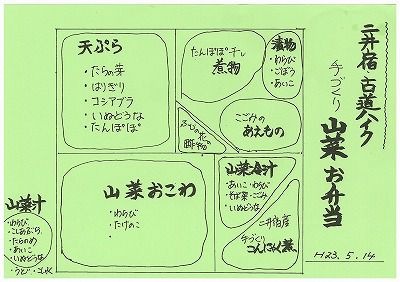 二井宿・古道ハイク
手づくり
山菜お弁当
H23.5.14
天ぷら
・たらの芽
・はりぎり
・コシアブラ
・いぬどうな
・たんぽぽ
たんぽぽ干し
煮物
漬物
・わらび
・ごぼう
・あいこ
ごごみの
あえもの
酢の物
山菜おこわ
・わらび
・たけのこ
・
山菜冷汁
・あいこ・わらび
・いぬどうな
二井宿産
手づくり
こんにゃく煮
山菜汁
・わらび
・こしあぶら
・たらのめ
・あいこ
・いぬどうな
・うど・こしゃく